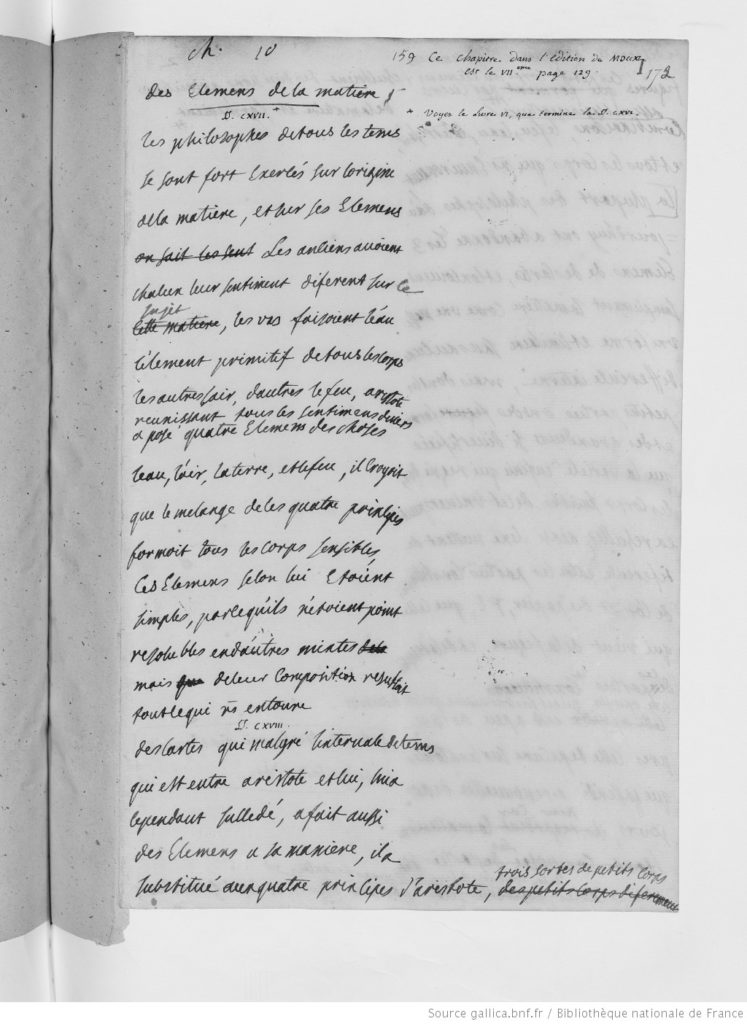 ch. 10
159 Ce Chapitre dans l'édition de MDCCXL
est le VII.eme page 129.
172
des Elemens de la matiére
§. CXVII. *
* Voyez le Livre VI, que termine le §. CXVI.
les philosophes de tous les tems
se sont fort exercés sur lorigine
de la matiére, et sur ses Elemens
on sait les sent Les anciens avoient
chacun leur sentiment diferent sur ce
sujet
cette matiére, les uns faisoient l'eau
l'élement primitif de tous les corps
les autres l'air, d'autres le feu, aristote
reunissant tous les sentimens divers
a posé quatre Elemens des choses
leau, l'air, la terre, et le feu, il croyoit
que le melange de ces quatre principes
formoit tous les corps sensibles
Ces Elemens selon lui Etoient
simples, parcequ'ils n'etoient point
resolubles en d'autres mixtes
mais que de leur Composition resultoit
tout ce qui ns entoure
§. CXVIII.
descartes qui malgré l'intervale de tems
qui est entre aristote et lui, lui a
cependant succedé, a fait aussi
des Elemens a sa maniére, il a
trois sortes de petits corps
substitué aux quatre principes d'aristote, des petits corps diferemment
Source gallica.bnf.fr / Bibliothèque nationale de France